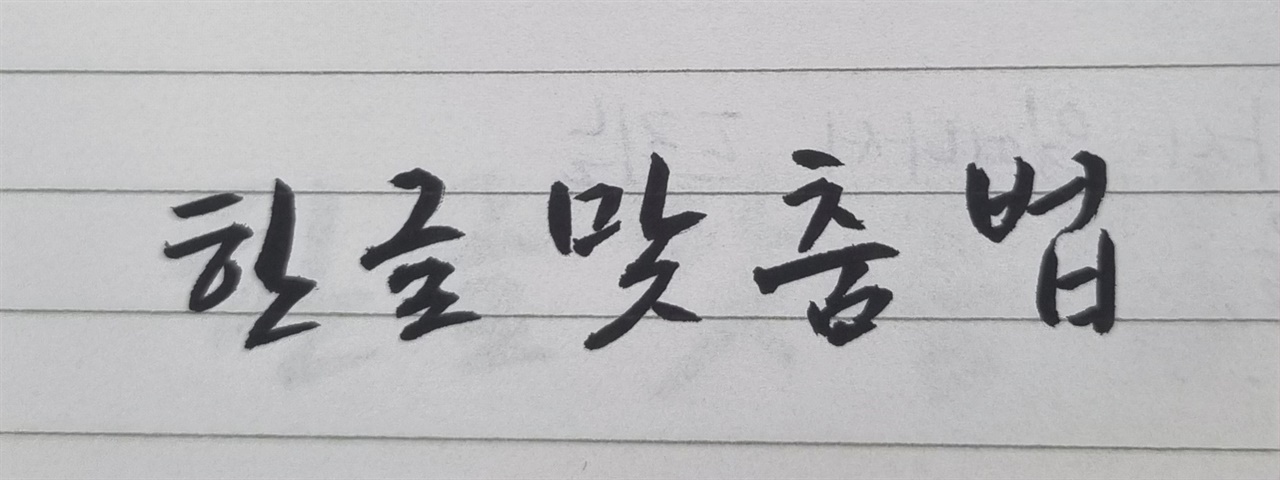 한글 맞춤법